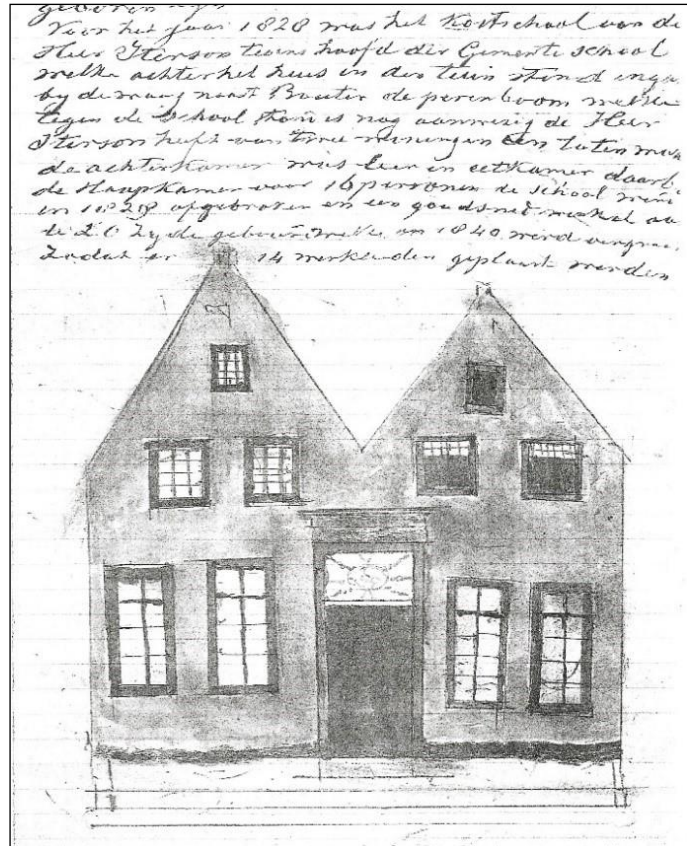 geboren
Voor het jaar 1828 was het Kostschool van de
Heer Iterson tevens hoofd der Gemeente school
welke achter het huis in den tuin stond inga
by de naast Bouter de perenboom welke
tegen de School stond is nog aanwezig de Heer
Iterson heeft van twee woningen een laten
de achterkamer was leer en eetkamer daarb
de Slaapkamer voor 16 personen de School
in 1828 afgebroken en een goudsmet winkel aa
de Z.O Zyde gebouw welke in 1840 werd
Zodat er 14 werklieden geplaatst werden